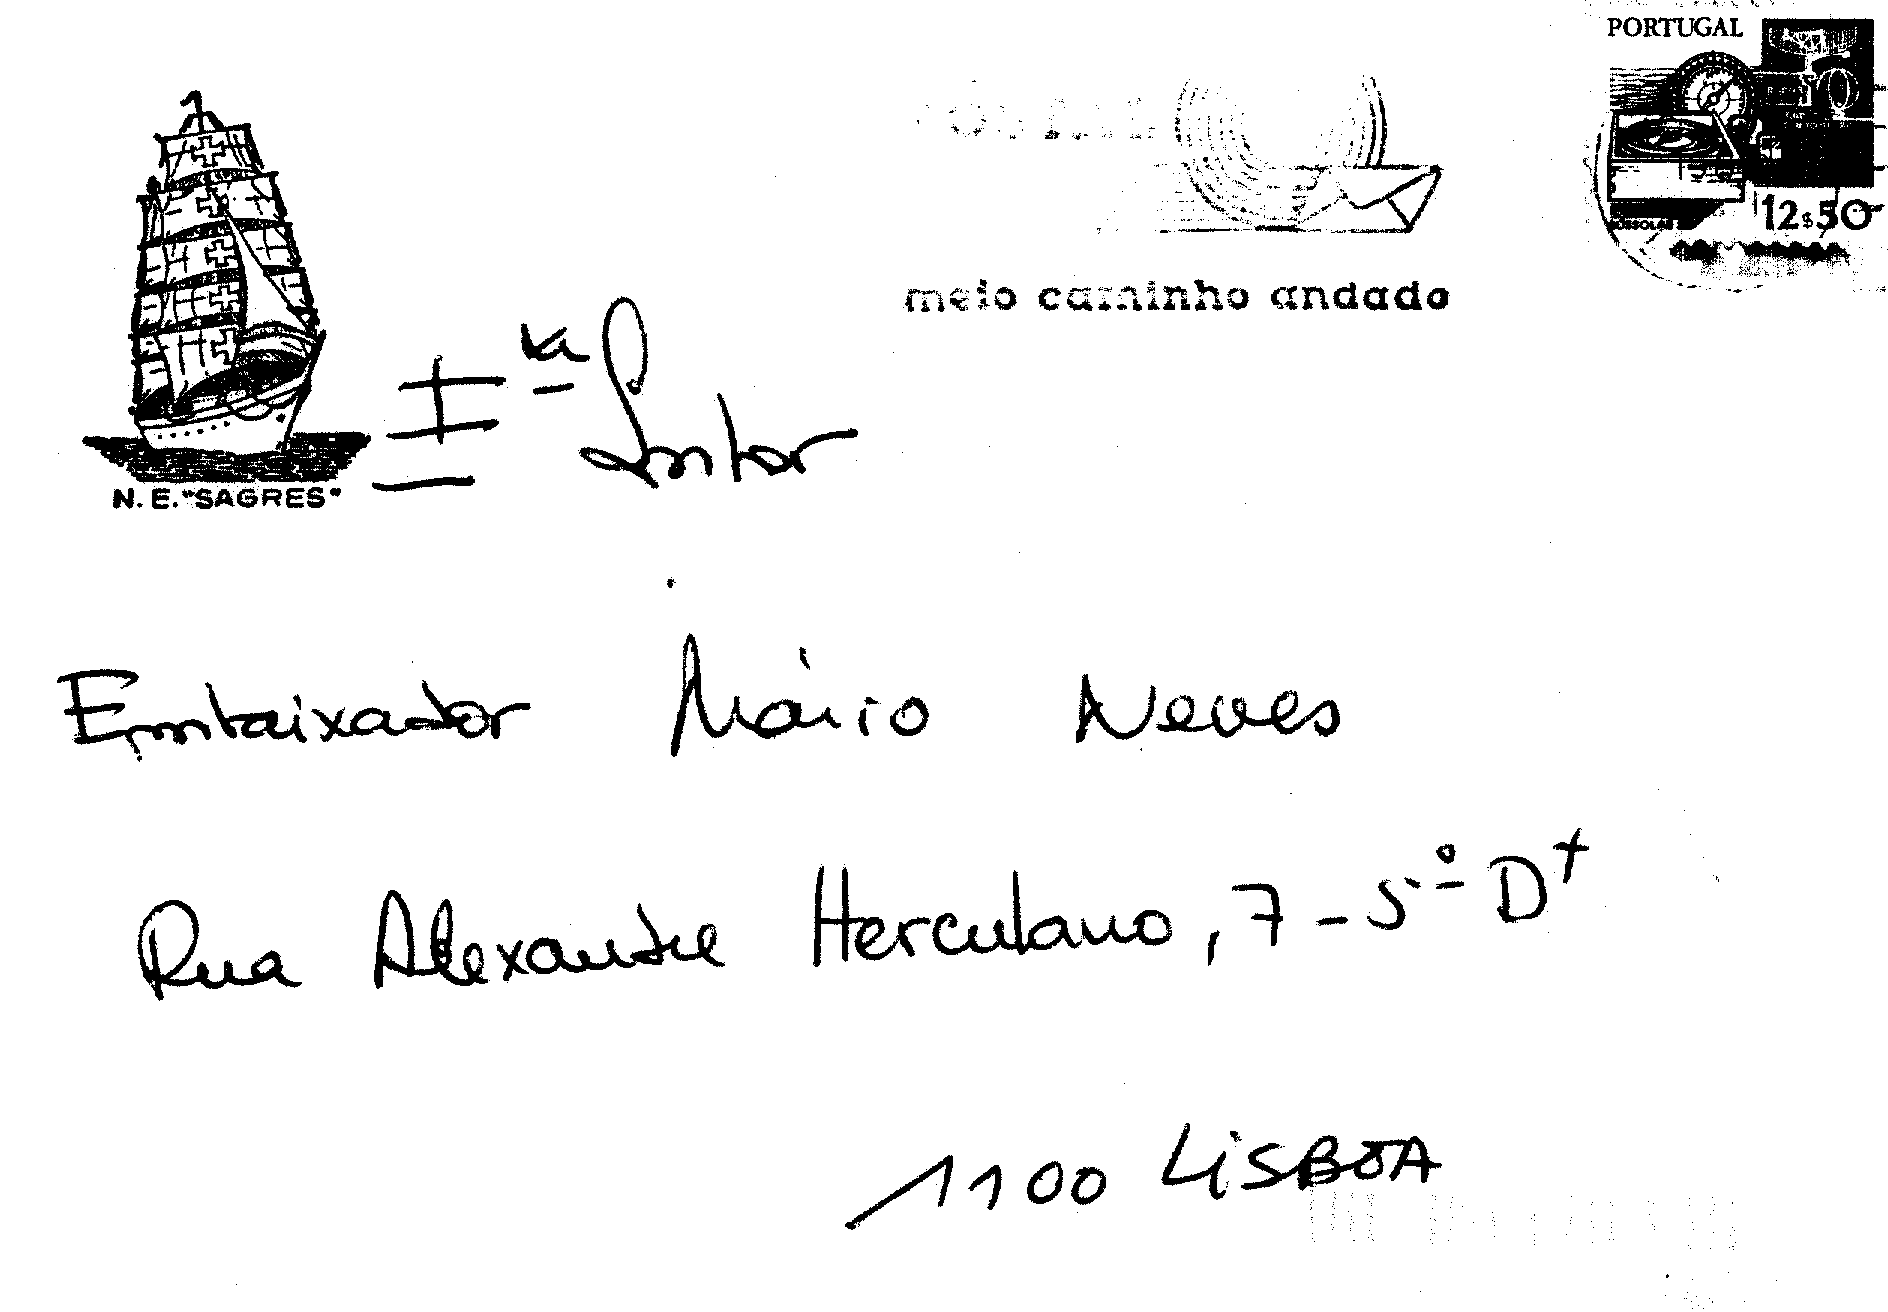 PORTUGAL
12$50
meio caminho andado
N. E. "SAGRES"
Embaixador Mário Neves
Rua Alexandre Herculano, 7 - 5º Dt
1100 LISBOA